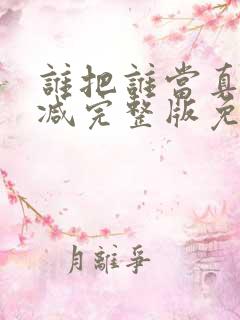 誰把誰當真
减完整版免
月離爭